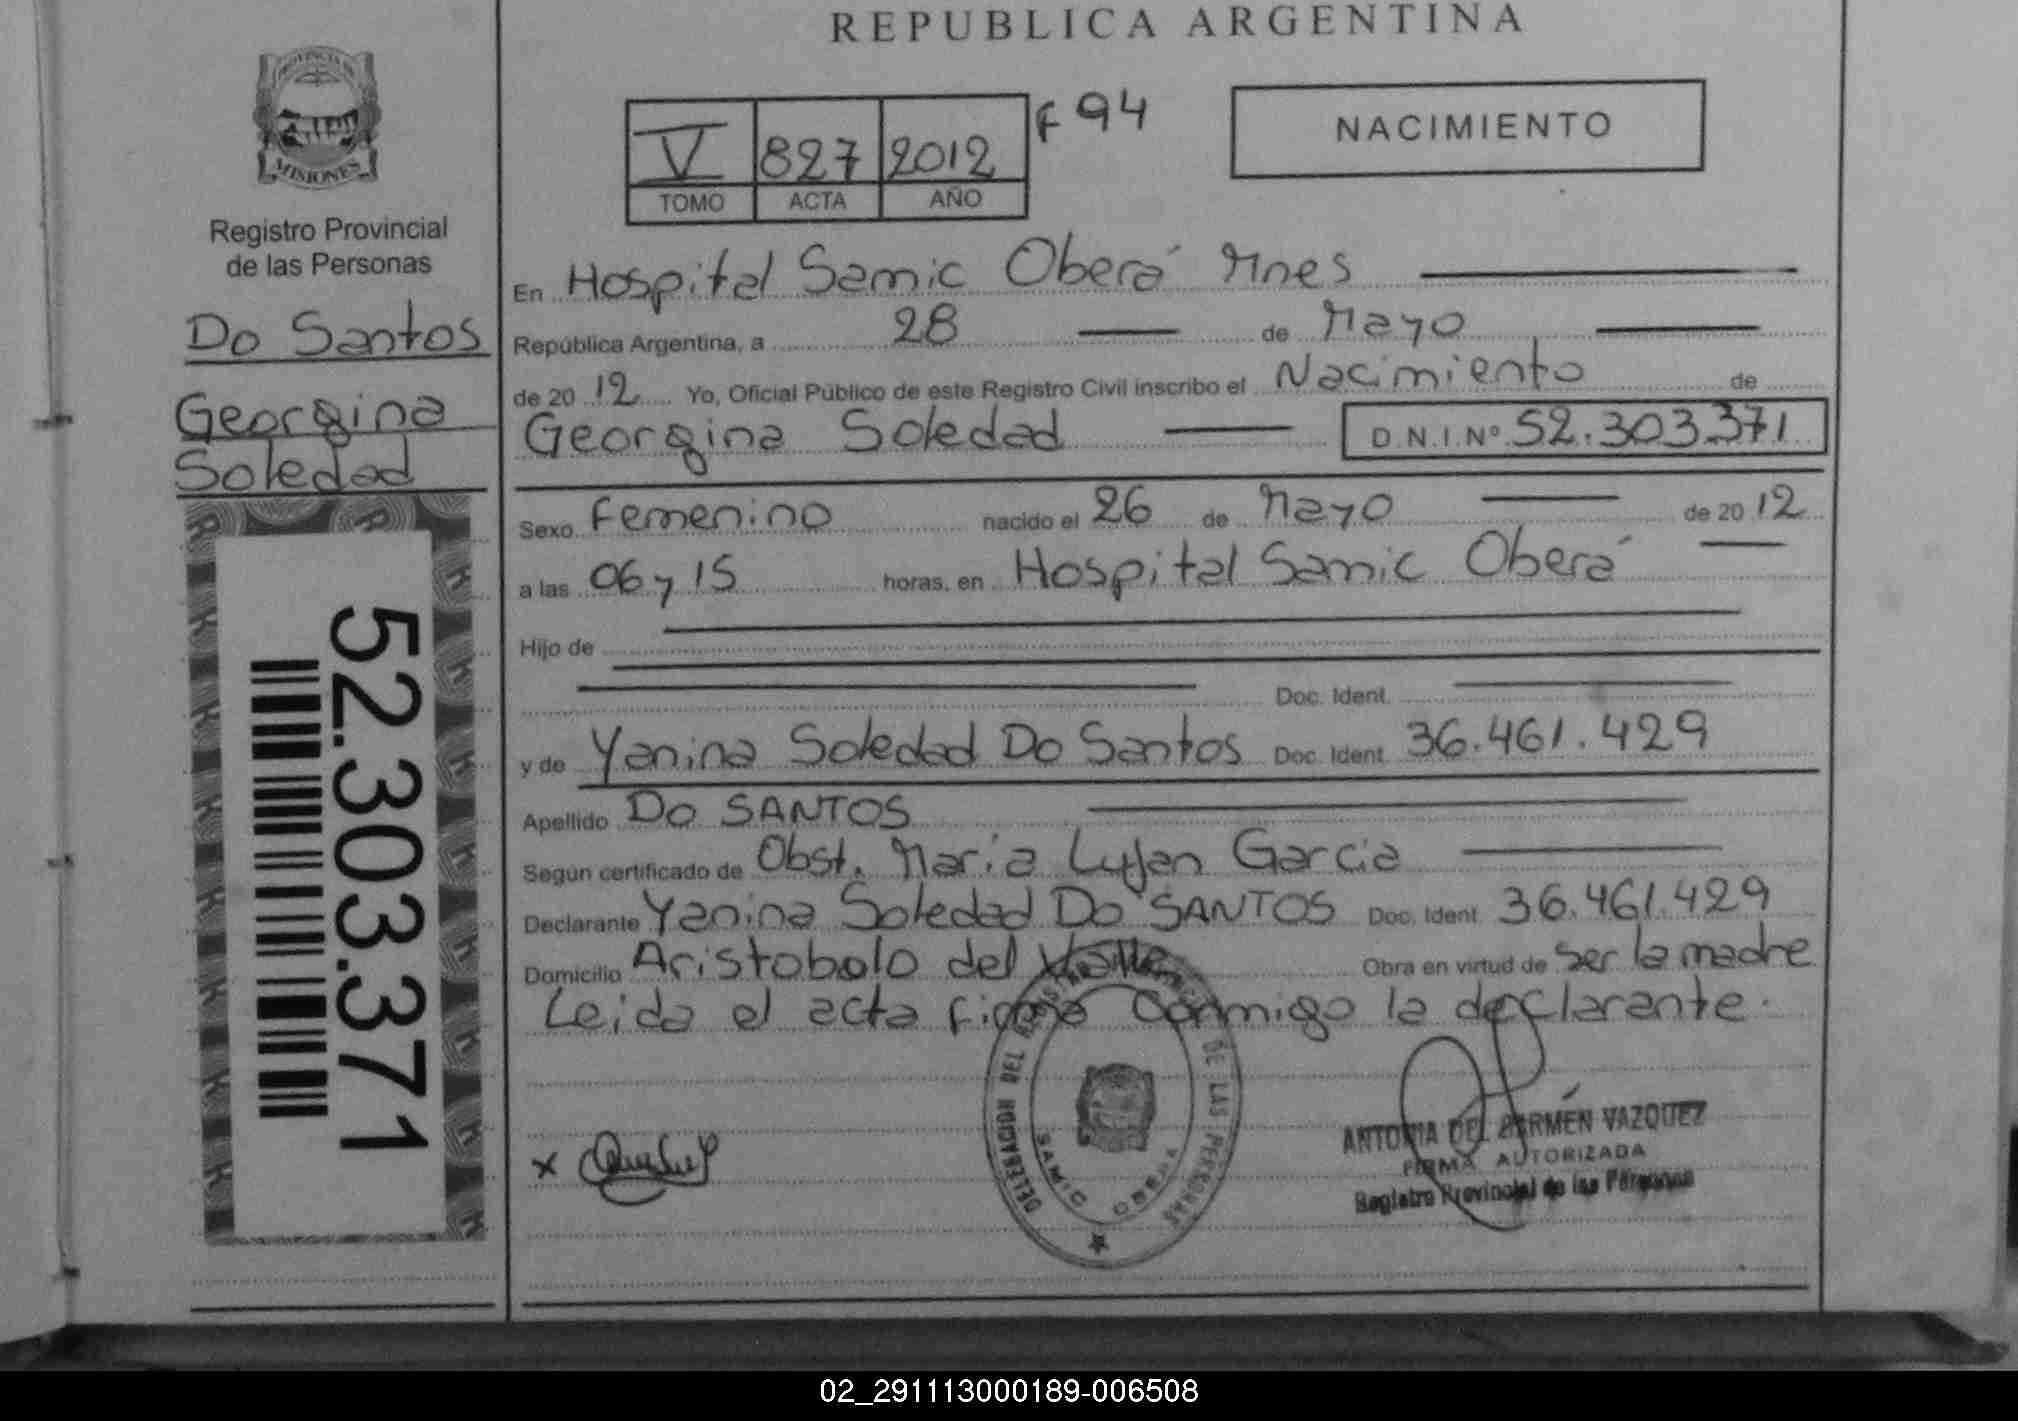 REPUBLICA ARGENTINA
PROVINCIA DE
MISIONES
Registro Provincial
de las Personas
Do Santos
Georgina
Soledad
52.303.371
V 827 2012 F 94
TOMO ACTA AÑO
NACIMIENTO
En Hospital Samic Oberá Mnes
República Argentina, a 28 de Mayo
de 20 12 Yo, Oficial Público de este Registro Civil inscribo el Nacimiento de
Georgina Soledad D.N.I.Nº 52.303.371
Sexo Femenino nacido el 26 de Mayo de 20 12
a las 06 y 15 horas, en Hospital Samic Oberá
Hijo de
Doc. Ident.
y de Yanina Soledad Do Santos Doc. Ident. 36.461.429
Apellido Do SANTOS
Según certificado de Obst. María Lujan Garcia
Declarante Yanina Soledad Do SANTOS Doc. Ident. 36.461.429
Domicilio Aristobolo del Valle Obra en virtud de ser la madre
Leida el acta firma conmigo la declarante.
x
DELEGACION DEL REGISTRO PROVINCIAL DE LAS PERSONAS
SAMIC OBERA
ANTONIA DEL CARMEN VAZQUEZ
FIRMA AUTORIZADA
Registro Provincial de las Personas
02_291113000189-006508